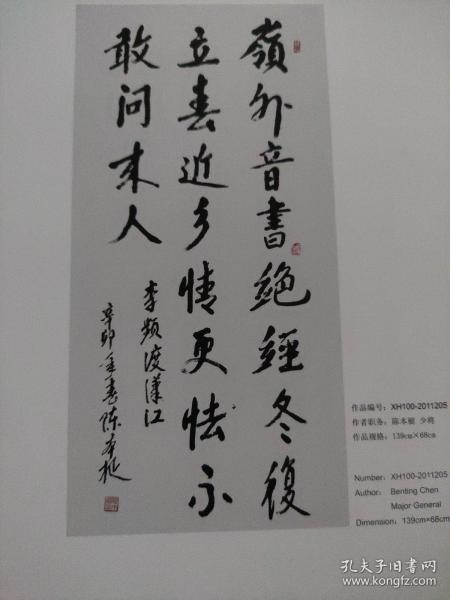 嶺外音書絶經冬復
立春近乡情更怯不
敢问来人
李频渡漢江
辛卯年春陈本梃
作品编号：XH100-2011205
作者职务：陈本梃 少将
作品规格：139cm×68cm
Number：XH100-2011205
Author：Benting Chen
Major General
Dimension：139cm×68cm
孔夫子旧书网
www.kongfz.com